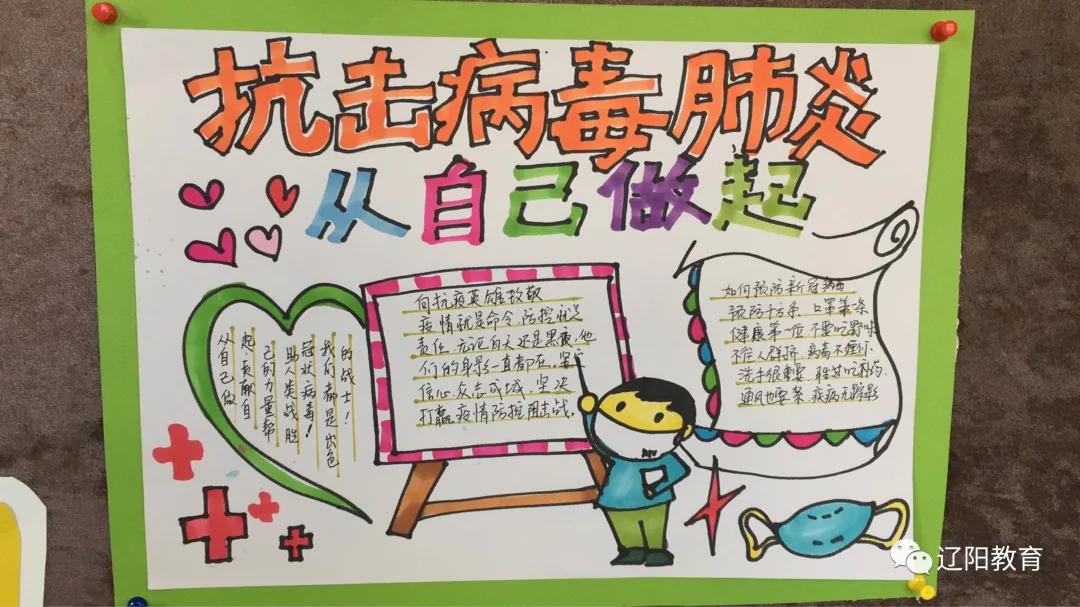 抗击病毒肺炎
从自己做起
从自己做
起,贡献自
己的力量帮
助人类战胜
冠状病毒!
我们都是出色
的战士!
向抗疫英雄致敬
疫情就是命令,防控就是
责任,无论白天还是黑夜,他
们的身影一直都在,坚定
信心,众志成城,坚决
打赢疫情防控阻击战.
如何预防新冠病毒
预防千万条 口罩第一条
健康第一位 不要吃野味
不往人群挤 病毒不理你.
洗手很重要 胜其吃补药.
通风也要紧 疾病无踪影
辽阳教育